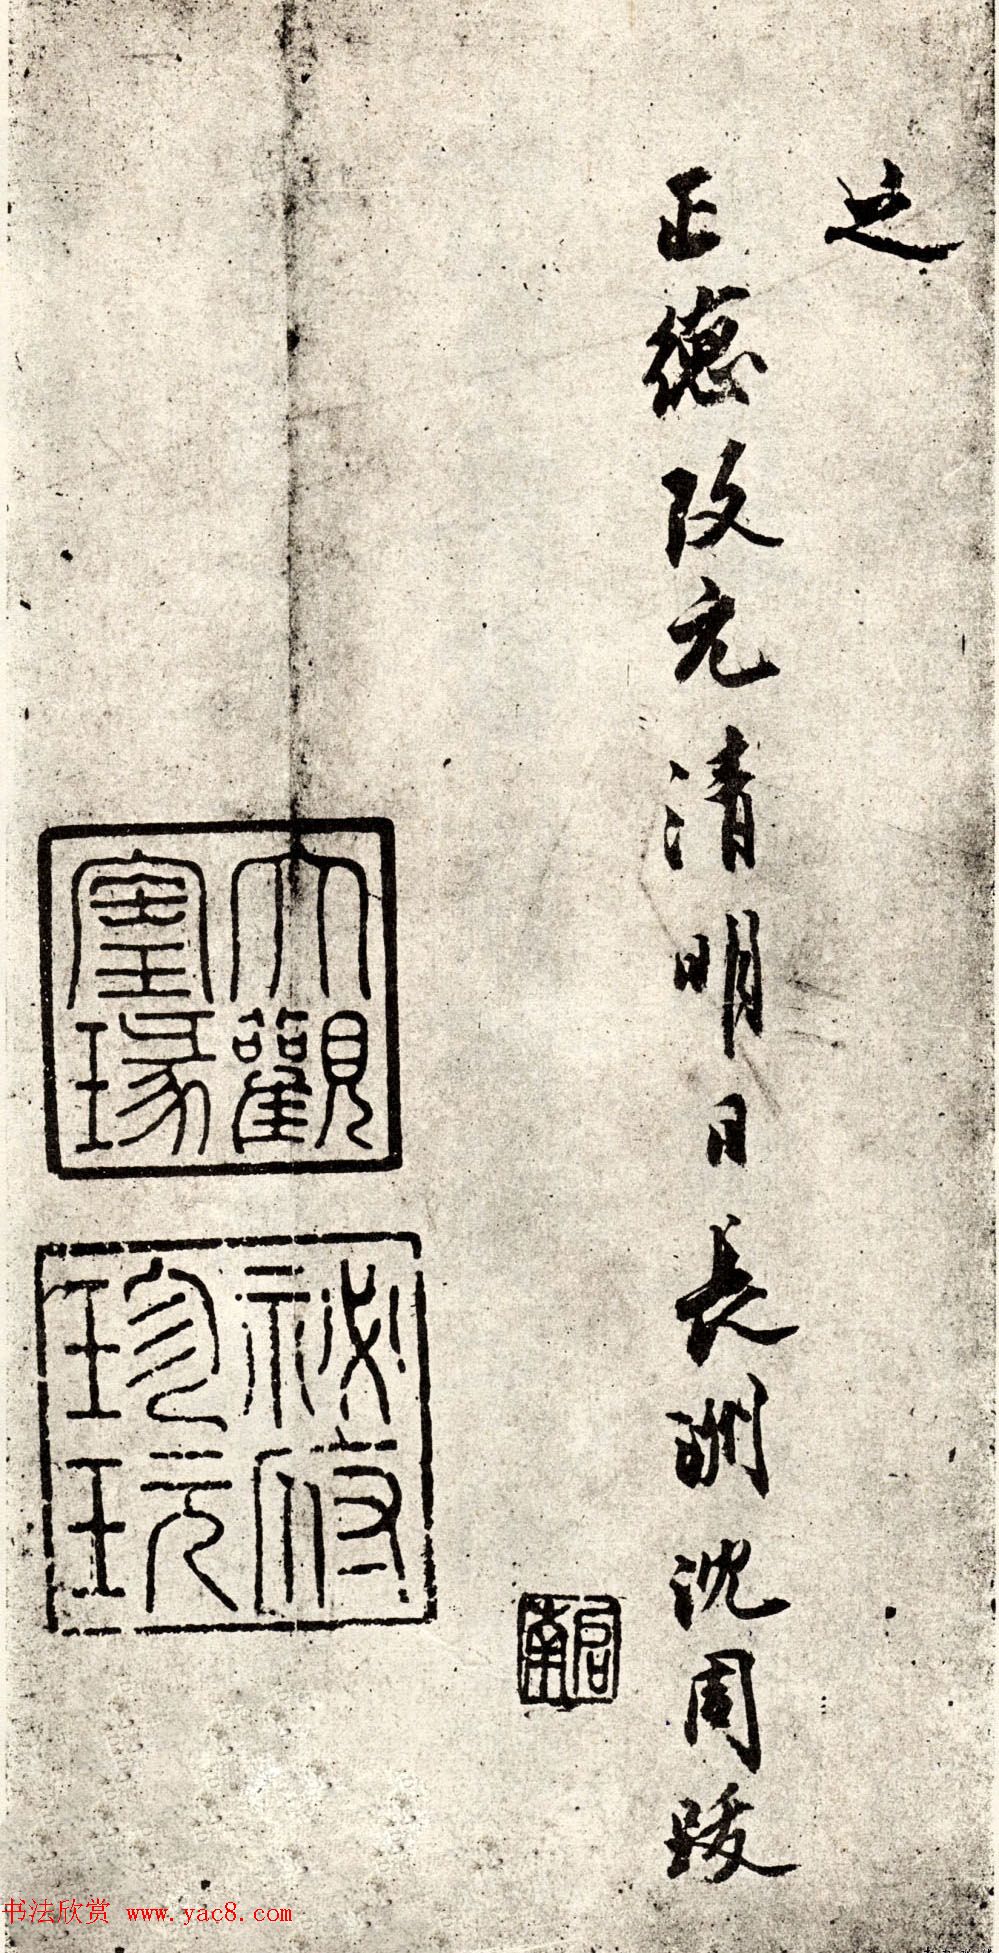 之
正德改元清明日長洲沈周跋
启南
大觀
寶瑑
祕府
珍玩
书法欣赏 www.yac8.com